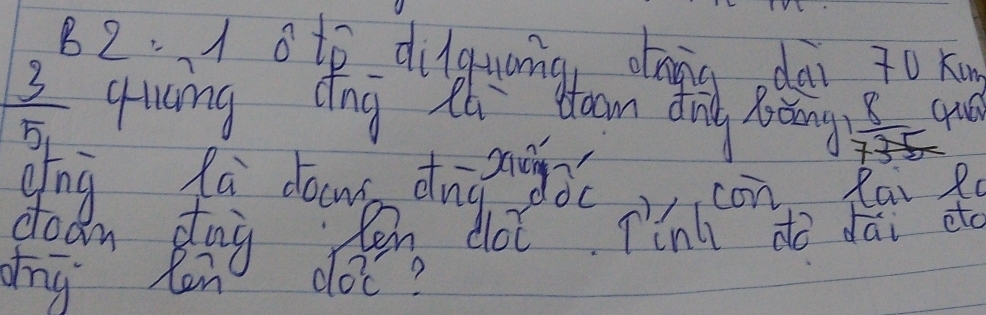 B2: 1 ô tô đi 1 quãng đờng dài 70 Km
3/5 quãng đng là đoạn đng bằng, 8/35 quã
đng là đoạn đng xuống dốc, còn lại là
đoạn đng lên dốc. Tính độ dài đo
đng lên dốc?